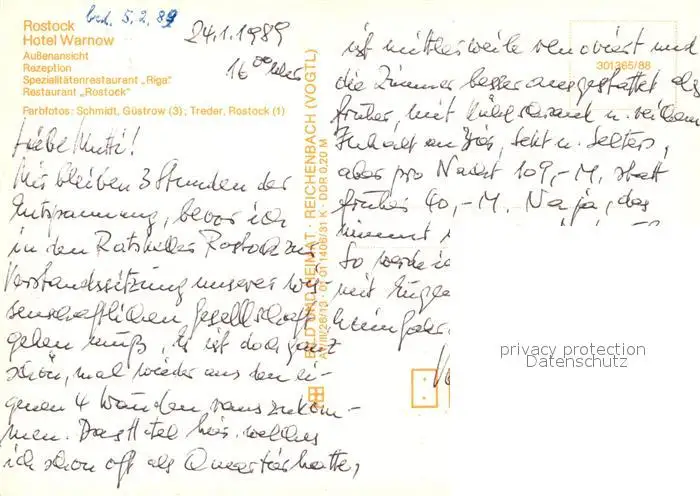 Rostock
Hotel Warnow
Außenansicht
Rezeption
Spezialitätenrestaurant „Riga"
Restaurant „Rostock"
Farbfotos: Schmidt, Güstrow (3); Treder, Rostock (1)
5.2.89
24.1.1989
16⁰⁰ Uhr
Liebe Mutti!
Mir bleiben 3 Stunden der
Entspannung, bevor ich
in den Ratskeller Rostock zur
Vorstandssitzung unserer wis-
senschaftlichen Gesellschaft
gehen muß. Es ist doch ganz
schön, mal wieder aus den ei-
genen 4 Wänden rauszukom-
men. Das Hotel hier, welches
ich schon oft als Quartier hatte,
BILD UND HEIMAT · REICHENBACH (VOGTL)
A1/III/26/13 · 01 01 1406/31 K · DDR 0,20 M
301365/88
ist mittlerweile renoviert und
die Zimmer besser ausgestattet als
früher, mit Kühlschrank u. reichem
Inhalt an Bier, Sekt u. Selters,
aber pro Nacht 109,-M, statt
früher 40,-M. Na ja, das
nimmt
So werde ic
mit
heimfahr
privacy protection
Datenschutz